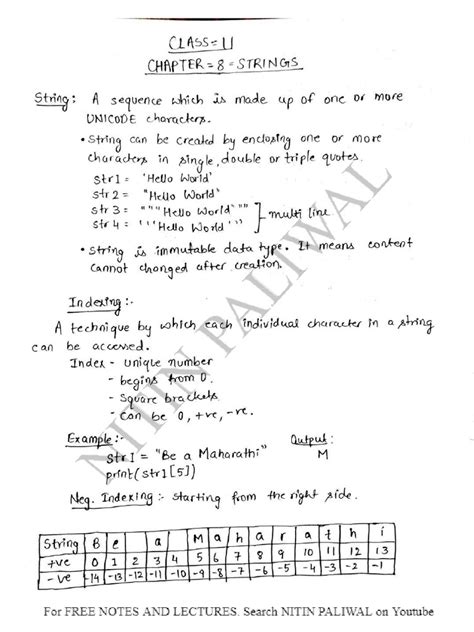 CLASS = 11
CHAPTER = 8 = STRINGS
String: A sequence which is made up of one or more
UNICODE characters.
• String can be created by enclosing one or more
characters in single, double or triple quotes.
str1 = 'Hello World'
str2 = "Hello World"
str3 = """Hello World"""
str4 = '''Hello World''' ] multi line
• String is immutable data type. It means content
cannot changed after creation.
Indexing :-
A technique by which each individual character in a string
can be accessed.
Index - unique number
- begins from 0.
- Square brackets
- Can be 0, +ve, -ve.
Example :- Output :
str1 = "Be a Maharathi" M
print(str1[5])
Neg. Indexing :- starting from the right side.
String B e a M a h a r a t h i
+ve 0 1 2 3 4 5 6 7 8 9 10 11 12 13
-ve -14 -13 -12 -11 -10 -9 -8 -7 -6 -5 -4 -3 -2 -1
NITIN PALIWAL
For FREE NOTES AND LECTURES. Search NITIN PALIWAL on Youtube